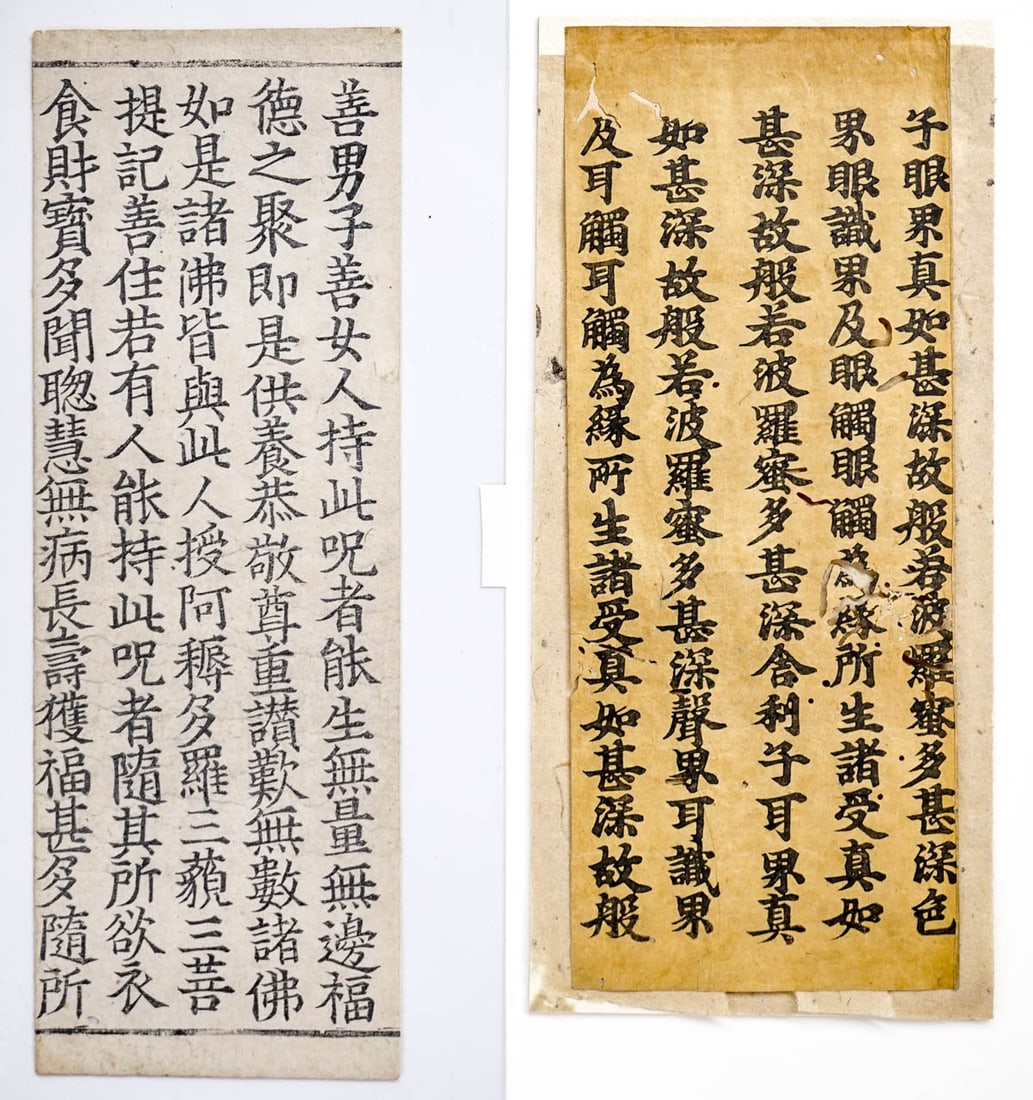 善男子善女人持此呪者能生無量無邊福
德之聚即是供養恭敬尊重讃歎無數諸佛
如是諸佛皆與此人授阿耨多羅三藐三菩
提記善住若有人能持此呪者隨其所欲衣
食財寶多聞聦慧無病長壽獲福甚多隨所
子眼界真如甚深故般若波羅蜜多甚深色
界眼識界及眼觸眼觸為緣所生諸受真如
甚深故般若波羅蜜多甚深舍利子耳界真
如甚深故般若波羅蜜多甚深聲界耳識界
及耳觸耳觸為緣所生諸受真如甚深故般